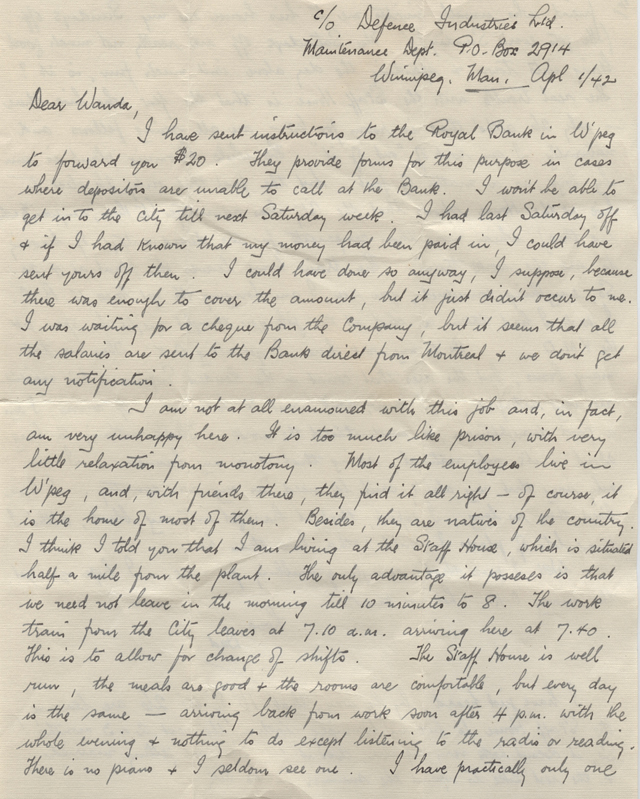 c/o Defence Industries Ltd.
Maintenance Dept. P.O. Box 2914
Winnipeg. Man. Apl 1/42
Dear Wanda,
I have sent instructions to the Royal Bank in W'peg
to forward you $20. They provide forms for this purpose in cases
where depositors are unable to call at the Bank. I won't be able to
get in to the City till next Saturday week. I had last Saturday off
& if I had known that my money had been paid in, I could have
sent yours off then. I could have done so anyway, I suppose, because
there was enough to cover the amount, but it just didn't occur to me.
I was waiting for a cheque from the Company, but it seems that all
the salaries are sent to the Bank direct from Montreal & we don't get
any notification.
I am not at all enamoured with this job and, in fact,
am very unhappy here. It is too much like prison, with very
little relaxation from monotony. Most of the employees live in
W'peg, and, with friends there, they find it all right – of course, it
is the home of most of them. Besides, they are natives of the country.
I think I told you that I am living at the Staff House, which is situated
half a mile from the plant. The only advantage it posseses is that
we need not leave in the morning till 10 minutes to 8. The work
train from the City leaves at 7.10 a.m. arriving here at 7.40.
This is to allow for change of shifts. The Staff House is well
run, the meals are good & the rooms are comfortable, but every day
is the same — arriving back from work soon after 4 p.m. with the
whole evening & nothing to do except listening to the radio or reading.
There is no piano & I seldom see one. I have practically only one